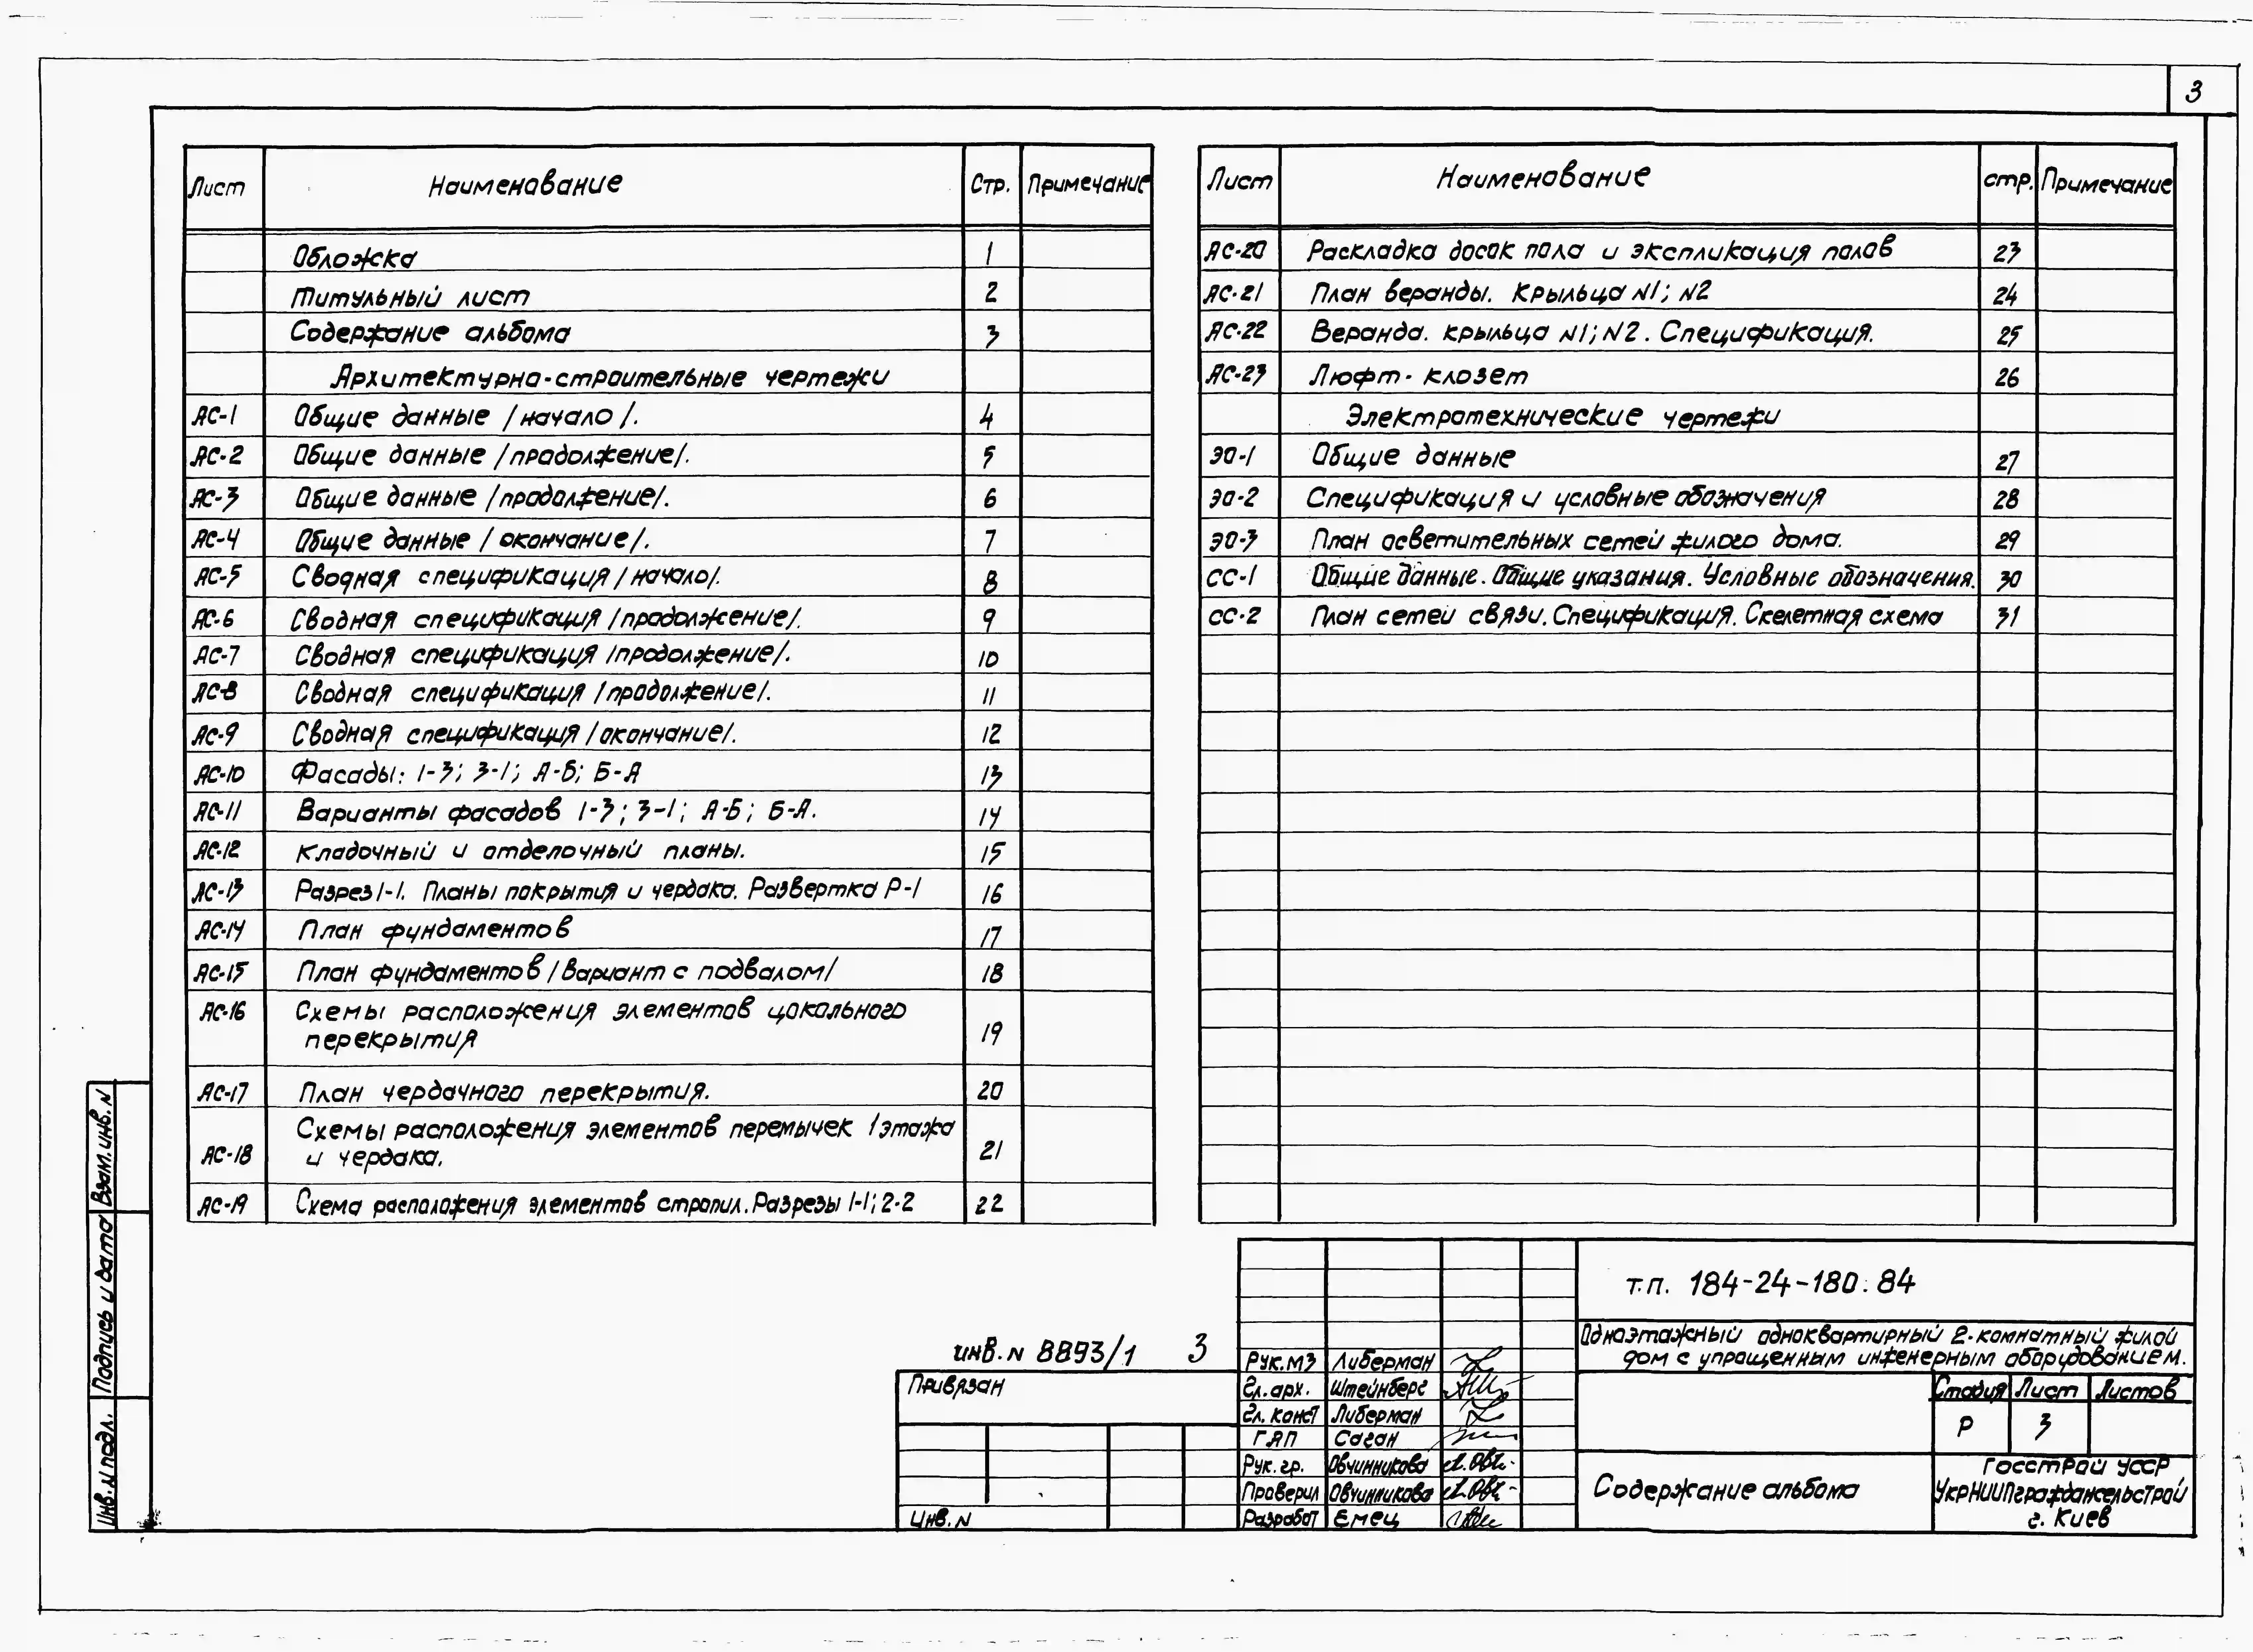 3
Лист Наименование Стр. Примечание
Обложка 1
Титульный лист 2
Содержание альбома 3
Архитектурно-строительные чертежи
АС-1 Общие данные /начало/. 4
АС-2 Общие данные /продолжение/. 5
АС-3 Общие данные /продолжение/. 6
АС-4 Общие данные /окончание/. 7
АС-5 Сводная спецификация /начало/. 8
АС-6 Сводная спецификация /продолжение/. 9
АС-7 Сводная спецификация /продолжение/. 10
АС-8 Сводная спецификация /продолжение/. 11
АС-9 Сводная спецификация /окончание/. 12
АС-10 Фасады: 1-3; 3-1; А-Б; Б-А 13
АС-11 Варианты фасадов 1-3; 3-1; А-Б; Б-А. 14
АС-12 Кладочный и отделочный планы. 15
АС-13 Разрез 1-1. Планы покрытия и чердака. Развертка Р-1 16
АС-14 План фундаментов 17
АС-15 План фундаментов /вариант с подвалом/ 18
АС-16 Схемы расположения элементов цокольного
перекрытия 19
АС-17 План чердачного перекрытия. 20
АС-18 Схемы расположения элементов перемычек 1 этажа
и чердака. 21
АС-19 Схема расположения элементов стропил. Разрезы 1-1; 2-2 22
Лист Наименование стр. Примечание
АС-20 Раскладка досок пола и экспликация полов 23
АС-21 План веранды. Крыльца N1; N2 24
АС-22 Веранда. крыльца N1; N2. Спецификация. 25
АС-23 Люфт-клозет 26
Электротехнические чертежи
ЭО-1 Общие данные 27
ЭО-2 Спецификация и условные обозначения 28
ЭО-3 План осветительных сетей жилого дома. 29
СС-1 Общие данные. Общие указания. Условные обозначения. 30
СС-2 План сетей связи. Спецификация. Скелетная схема 31
Взам. инв. N
Подпись и дата
Инв. N подл.
инв. N 8893/1 3
Привязан
Инв. N
Рук. МЗ Либерман
Гл. арх. Штейнберг
Гл. конст Либерман
ГАП Саган
Рук. гр. Овчинникова
Проверил Овчинникова
Разработ Емец
т.п. 184-24-180.84
Одноэтажный одноквартирный 2-комнатный жилой
дом с упрощенным инженерным оборудованием.
Стадия Лист Листов
Р 3
Содержание альбома
Госстрой УССР
УкрНИИПграждансельстрой
г. Киев